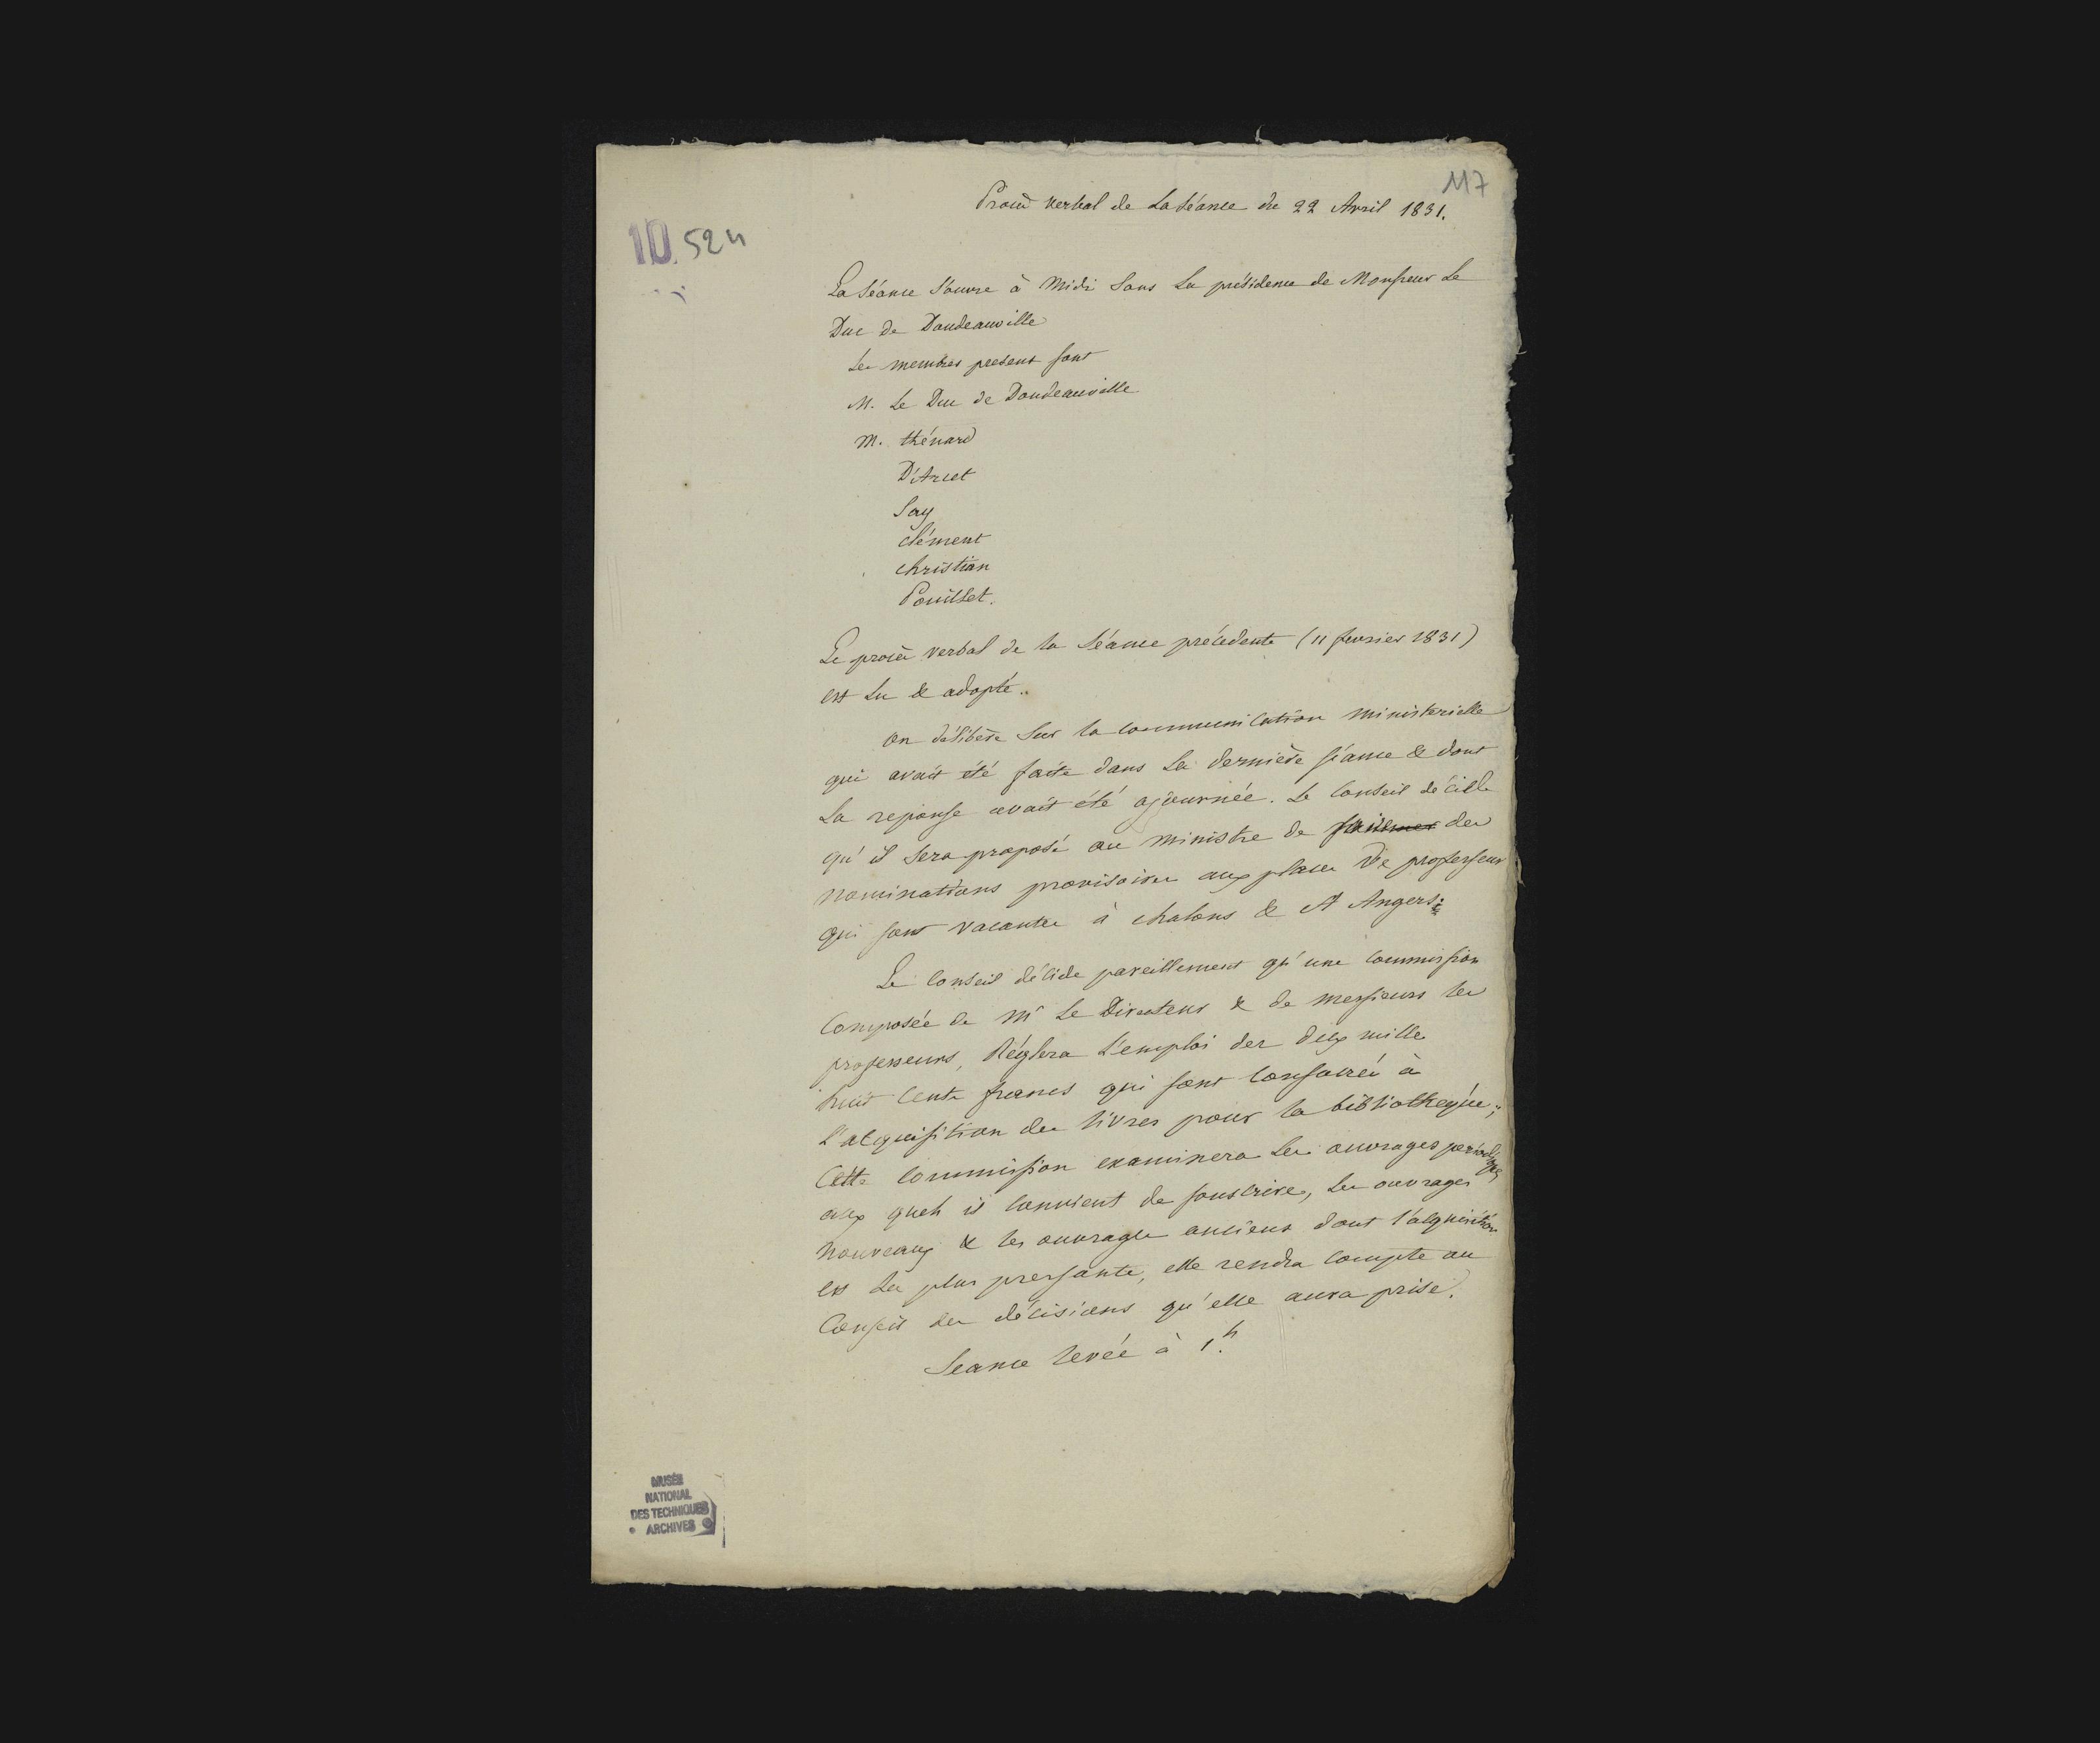 117
Procès verbal de La séance du 22 Avril 1831.
10 524
La séance s'ouvre à Midi sous la présidence de Monsieur Le
Duc de Doudeauville
Les membres present sont
M. Le Duc de Doudeauville
M. thénard
D'Arcet
Say
clément
christian
Pouillet.
Le procès verbal de la séance précedente (11 fevrier 1831)
est lu & adopté.
on délibère sur la communication ministerielle
qui avait été faite dans la dernière séance & dont
la reponse avait été ajournée. Le Conseil décide
qu'il sera proposé au ministre de des
nominations provisoires aux places de professeur
qui sont vacantes à chalons & A Angers.
Le Conseil décide pareillement qu'une commission
composée de Mr Le Directeur & de messieurs les
professeurs, Réglera l'emploi des deux mille
huit cents francs qui sont consacrés à
l'acquisition des livres pour la bibliothèque;
Cette commission examinera les ouvrages periodiques
aux quels il convient de souscrire, les ouvrages
nouveaux & les ouvrages anciens dont l'acquisition
est la plus pressante, elle rendra compte au
Conseil des décisions qu'elle aura prise.
Seance levée à 1h.
MUSÉE
NATIONAL
DES TECHNIQUES
ARCHIVES